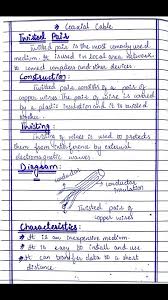 * Coaxial Cable
Twisted Pair
Twisted pair is the most commonly used
medium. It is used in local area network
to connect computers and other devices.
Construction:
Twisted pair consists of a pair of
copper wires. The pair of wire is covered
by a plastic insulation and is twisted
Twisting:
Twisting of wires is used to protects
them from interference by external
electromagnetic waves.
Diagram:
conductor
conductor
insulation
Twisted pair of
copper wires
Characteristics:
* It is an inexpensive medium.
* It is easy to install and use
* It can transfer data to a short
distance.